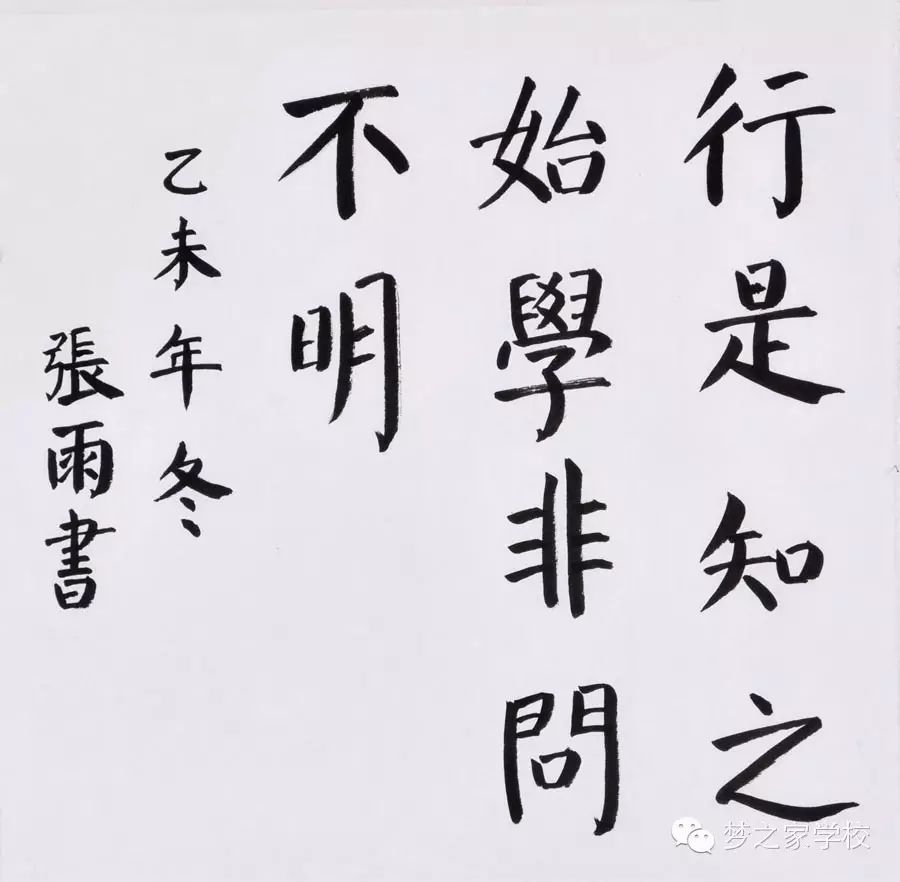 行是知之
始學非問
不明
乙未年冬
張雨書
梦之家学校